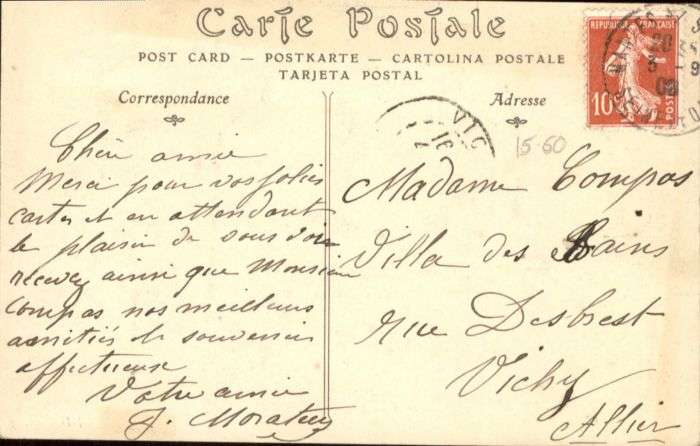 Carte Postale
POST CARD — POSTKARTE — CARTOLINA POSTALE
TARJETA POSTAL
Correspondance
Chère amie
Merci pour vos jolies
cartes et en attendant
le plaisir de vous voir
recevez ainsi que Monsieur
Compas nos meilleurs
amitiés et souvenir
affectueux
Votre amie
J.
Adresse
Madame Compas
Villa des Bains
rue Desbrest
Vichy
Allier
15-60
VIC
RÉPUBLIQUE FRANÇAISE
10
POSTES